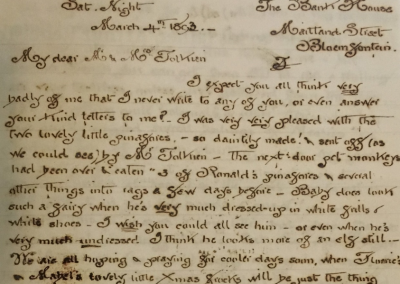 Sat. Night The Bank House
March 4th 1893. Maitland Street
Bloemfontein.
My dear Mr & Mrs Tolkien
I expect you all think very
badly of me that I never write to any of you, or even answer
your kind letters to me? I was very very pleased with the
two lovely little pinafores, - so daintily made! & sent off (as
we could see) by Mr Tolkien - The next-door pet monkeys
had been over & eaten 3 of Ronald's pinafores & several
other things into rags a few days before - Baby does look
such a fairy when he's very much dressed-up in white frills &
white shoes - I wish you could all see him - or even when he's
very much undressed I think he looks more of an elf still -
We are all hoping & praying for cooler days soon, when
& Mabel's lovely little Xmas frocks will be just the thing